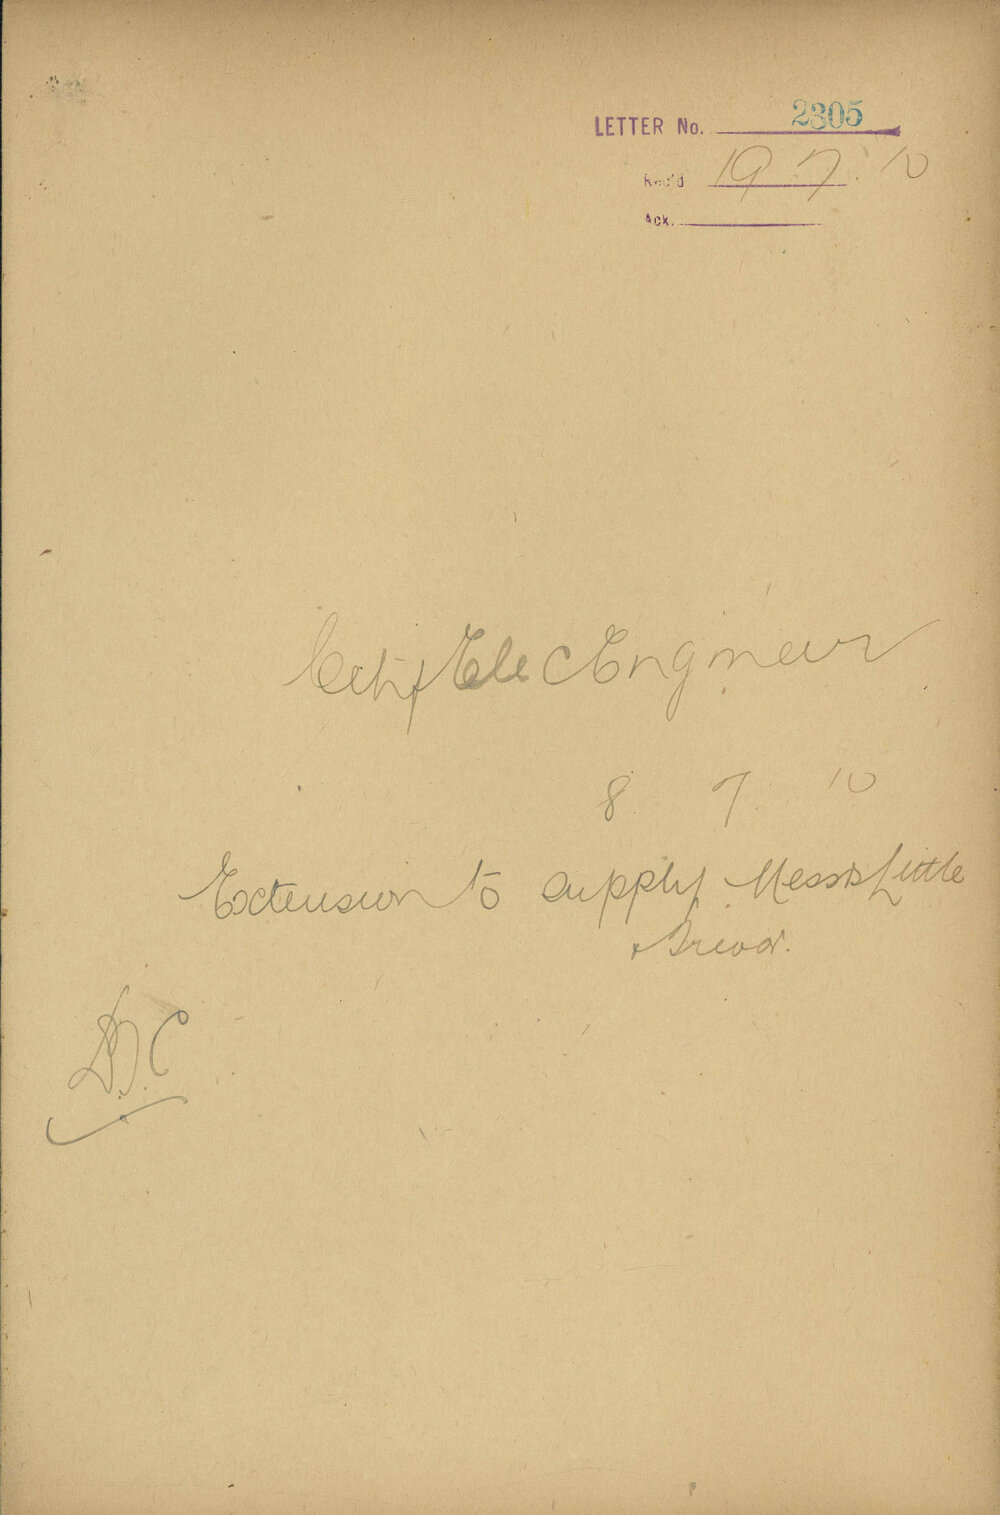 LETTER No. 2305
Rec'd 19 7 10
Ack.
City Elec Engineer
8. 7. 10
Extension to supply Messrs Little
D.C